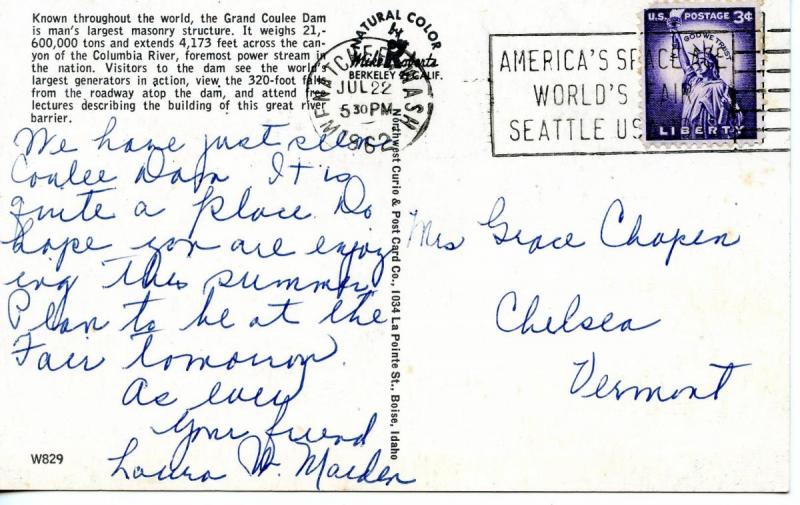 Known throughout the world, the Grand Coulee Dam
is man's largest masonry structure. It weighs 21,-
600,000 tons and extends 4,173 feet across the can-
yon of the Columbia River, foremost power stream in
the nation. Visitors to the dam see the world's
largest generators in action, view the 320-foot falls
from the roadway atop the dam, and attend free
lectures describing the building of this great river
barrier.
NATURAL COLOR
by
Mike Roberts
BERKELEY CALIF.
WENATCHEE WASH
JUL 22
530 PM
1962
AMERICA'S SPACE AGE
WORLD'S FAIR
SEATTLE US
U.S. POSTAGE 3¢
IN GOD WE TRUST
LIBERTY
We have just seen
Coulee Dam. It is
quite a place. Do
hope you are enjoy
ing this summer
Plan to be at the
Fair tomorrow.
As ever
Your friend
Laura W. Marden
Northwest Curio & Post Card Co., 1034 La Pointe St., Boise, Idaho
Mrs Grace Chapin
Chelsea
Vermont
W829